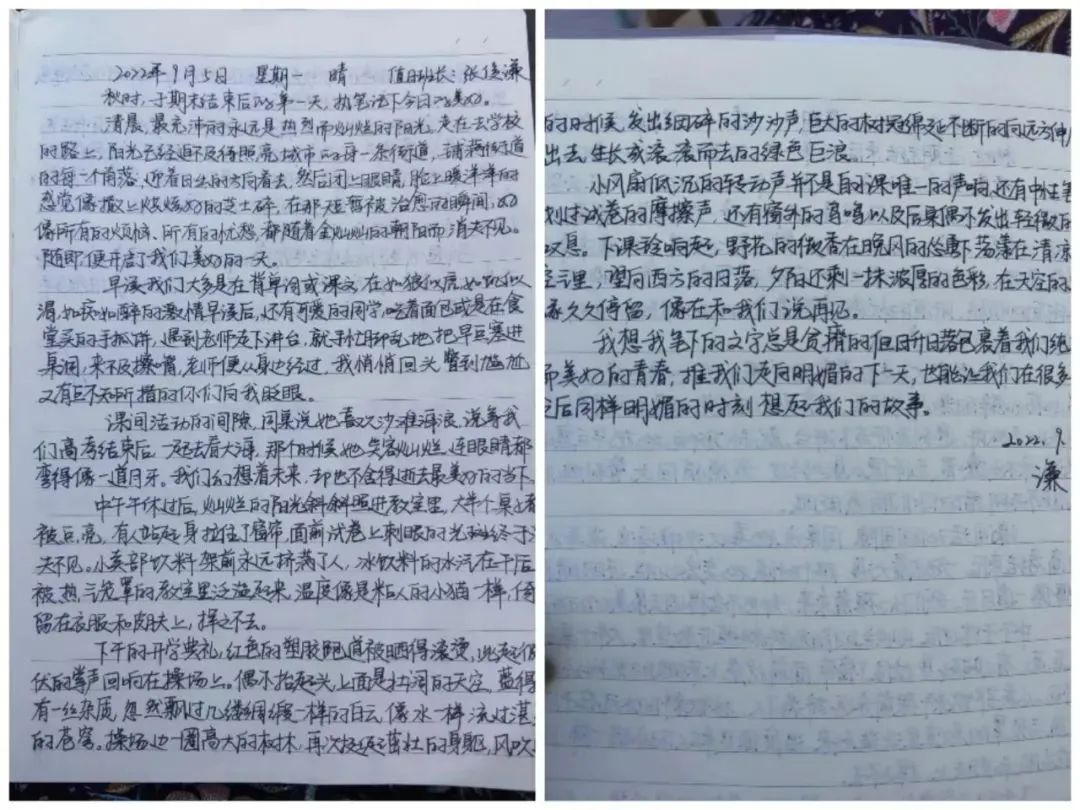 2022年9月5日 星期一 晴 值日班长:张俊谦
秋时,于期末结束后的第一天,执笔记下今日的美好。
清晨,最充沛的永远是热烈而灿烂的阳光,走在去学校
的路上,阳光已经迫不及待照亮城市的每一条街道,铺满街道
的每一个角落,迎着日出的方向看去,然后闭上眼睛,脸上暖洋洋的
感觉像撒上烘烤好的芝士碎,在那短暂被治愈的瞬间,好
像所有的烦恼、所有的忧愁都随着金灿灿的朝阳而消失不见。
随即便开启了我们美好的一天。
早读我们大多是在背单词或课文,在如狼似虎,如饥似
渴,如痴如醉的激情早读后,还有可爱的同学吃着面包或是在食
堂买的手抓饼,遇到老师走下讲台,就手忙脚乱地把早点塞进
桌洞,来不及擦嘴,老师便从身边经过,我悄悄回头,瞥到尴尬
又有些不知所措的你们向我眨眼。
课间活动的间隙,同桌说她喜欢沙滩海浪,说等我
们高考结束后一起去看大海,那个时候她笑容灿烂,连眼睛都
弯得像一道月牙。我们幻想着未来,却也不舍得逝去最美好的当下
中午午休过后,灿烂的阳光斜斜照进教室里,大半个桌子
被点亮,有人站起身拉住了窗帘,面前试卷上刺眼的光斑终于
失不见。小卖部饮料架前永远挤满了人,冰饮料的水汽在午后
被热气笼罩的教室里泛滥起来,温度像是粘人的小猫一样,倚
留在衣服和皮肤上,挥之不去。
下午的开学典礼,红色的塑胶跑道被晒得滚烫,此起彼
伏的掌声回响在操场上。偶尔抬起头,上面是壮阔的天空,蓝得
有一丝杂质,忽然飘过几缕绸缎一样的白云,像水一样流过湛
的苍穹。操场边一圈高大的树木,再次挺起茁壮的身躯,风吹
的时候,发出细碎的沙沙声,巨大的树冠绵延不断的向远方伸
出去,生长成滚滚而去的绿色巨浪。
小风扇低沉的转动声并不是自课唯一的声响,还有中性笔
划过试卷的摩擦声,还有窗外的鸟鸣以及后桌偶尔发出轻微的
叹息。下课铃响起,野花的微香在晚风的怂恿下落落在清凉
空气里,望向西方的日落,夕阳还剩一抹浓厚的色彩,在天空的
久久停留,像在和我们说再见。
我想我笔下的文字总是贫瘠的但日升日落包裹着我们纯
而美好的青春,推我们走向明媚的下一天,也能让我们在很多
之后同样明媚的时刻想起我们的故事。
2022.9.
谦